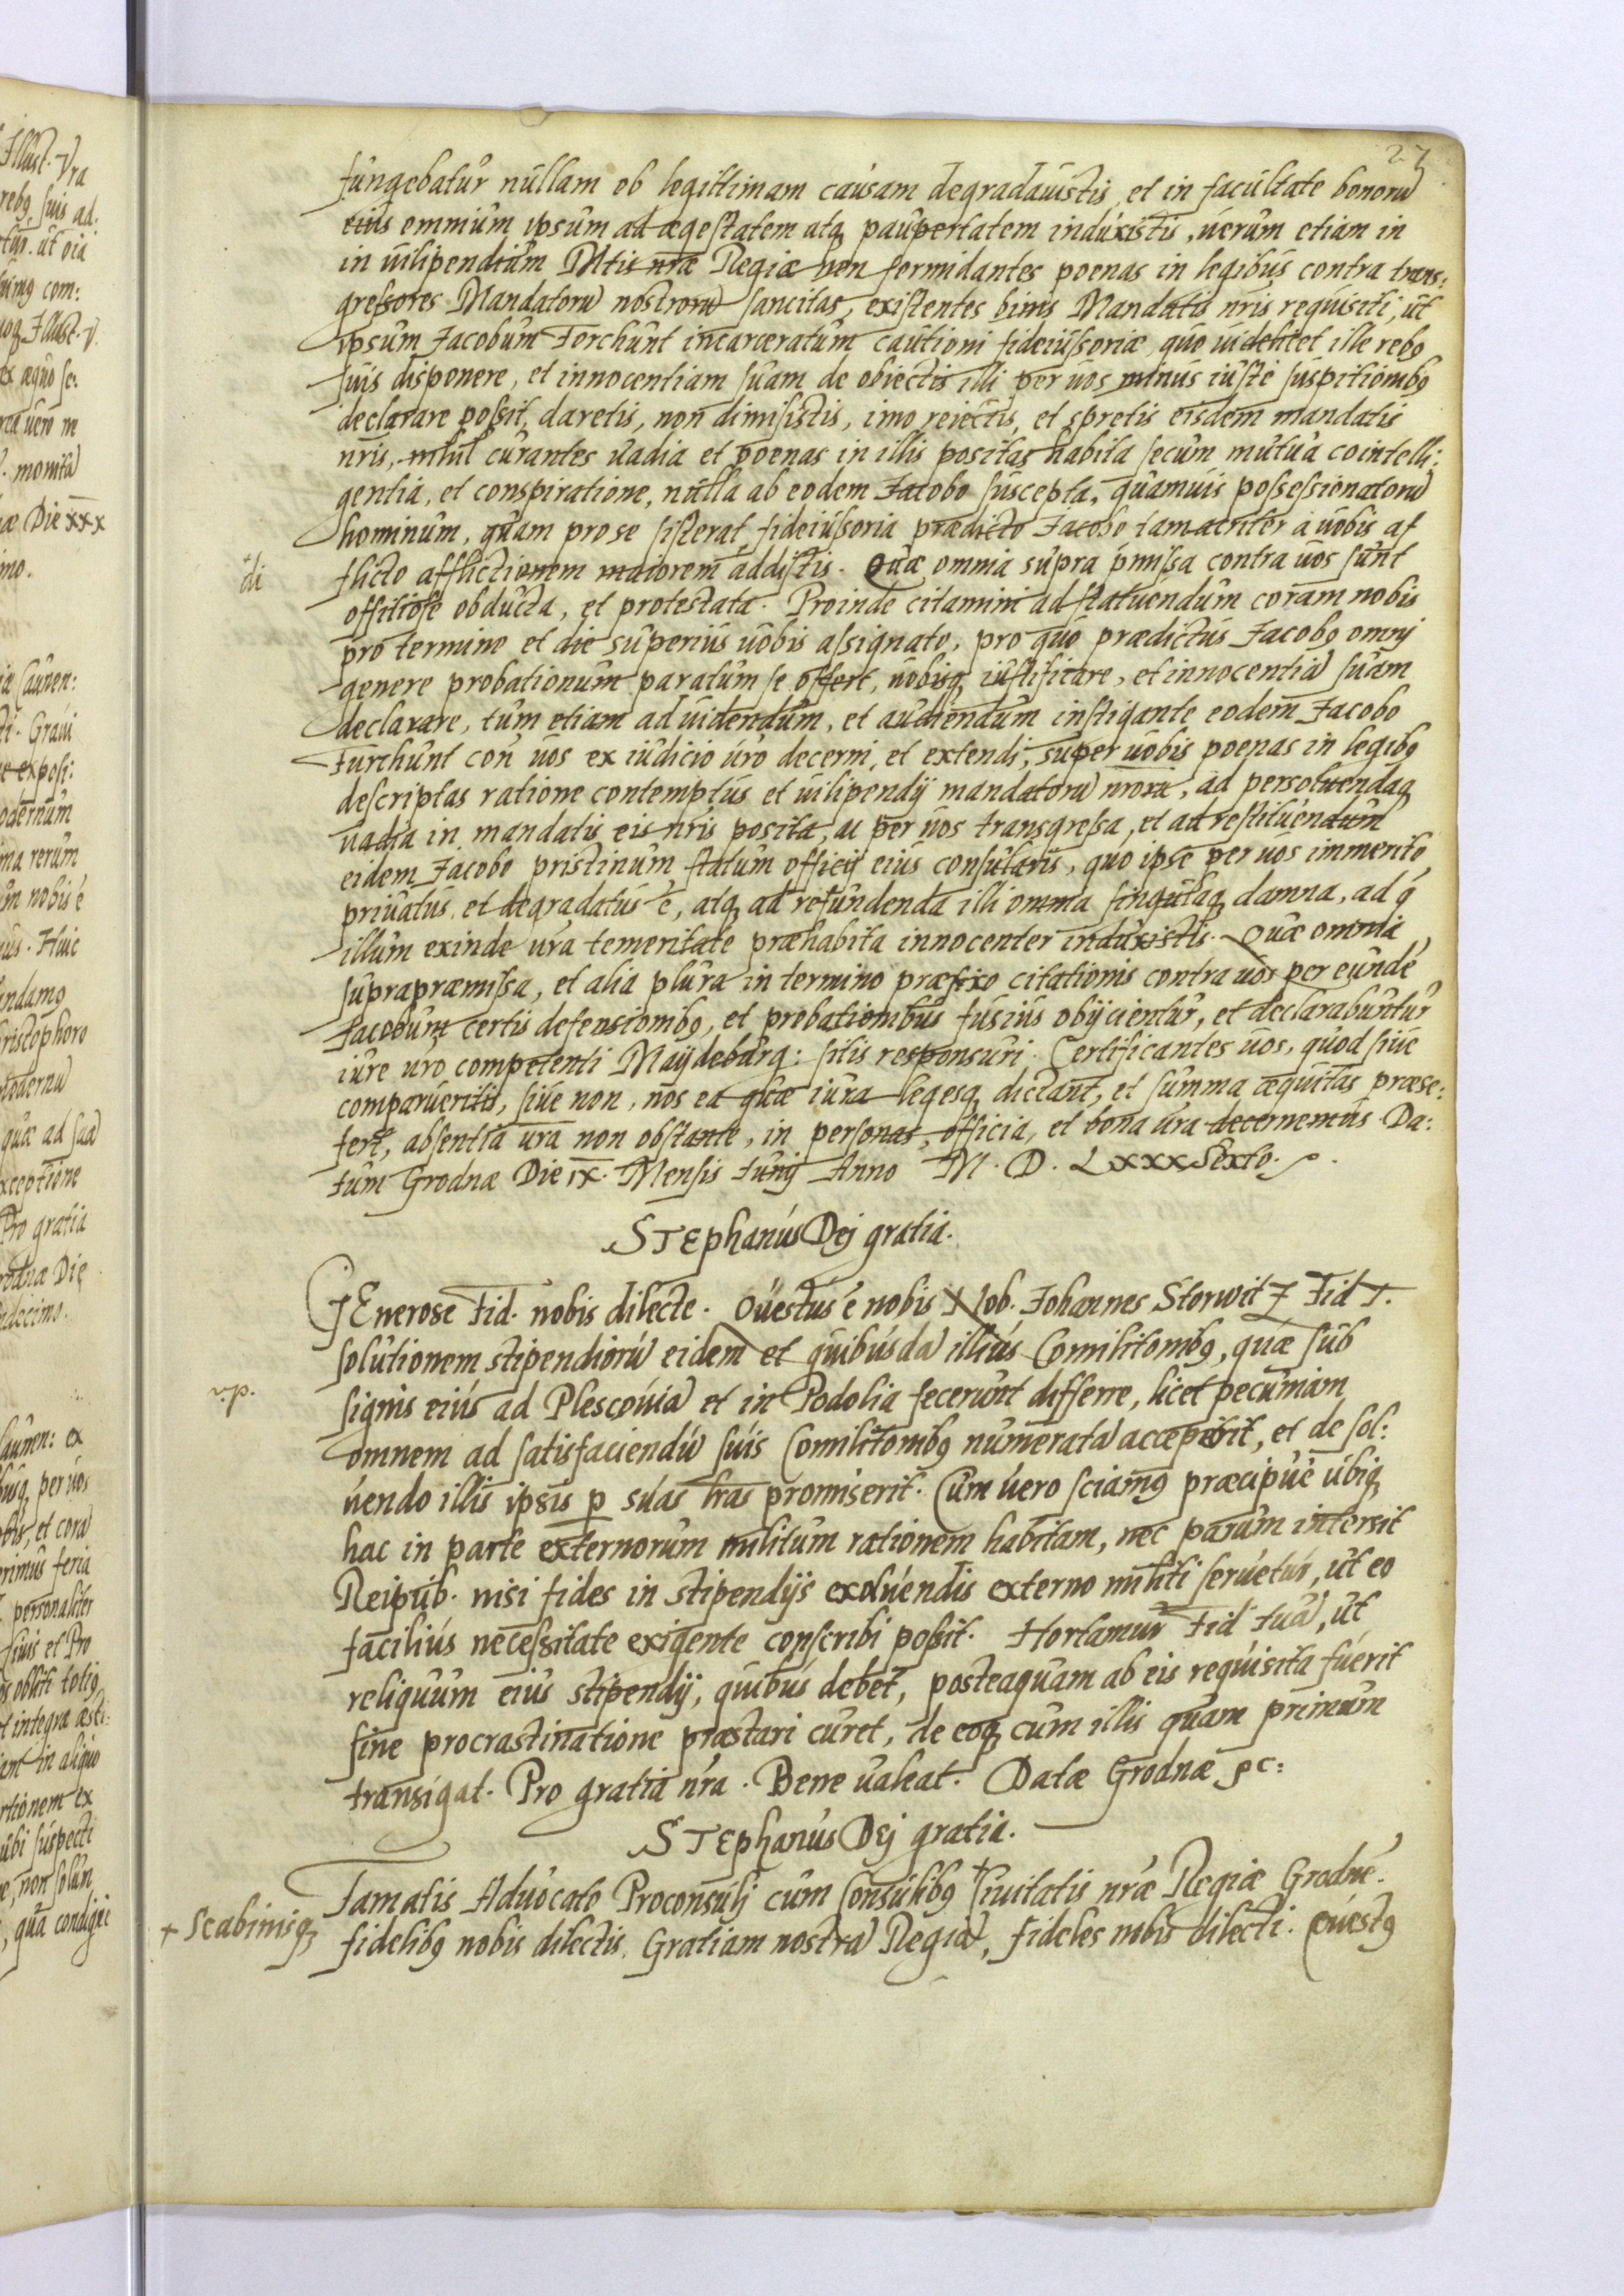 27
fungebatur nullam ob legittimam causam degradauistis, et in facultate bonorũ
eius omnium ipsum ad ægestatem atq̃ paupertatem induxistis, uerum etiam in
in uilipendium Mtis nræ Regiæ non formidantes poenas in legibus contra trans:
gressores Mandatorũ nostrorũ sancitas, existentes binis Mandatis nris requisiti, ut
ipsum Jacobum Forchunt incarceratum cautioni fideiussoriæ, quo uidelicet ille rebꝰ
suis disponere, et innocentiam suam de obiectis illi per uos minus iuste suspitionibꝰ
declarare possit, daretis, non dimisistis, imo reiectis, et spretis eisdem mandatis
nris, nihil curantes uadia et poenas in illis positas habita secum mutua cointelli:
gentia, et conspiratione, nulla ab eodem Jacobo suscepta, quamuis possessionatorũ
hominum, quam pro se sisterat, fideiussoria prædicto Jacobo tam acriter à uobis af
di flicto afflictionem maiorem addistis. Quæ omnia supra p̃missa contra uos sunt
offitiose obducta, et protestata. Proinde citamini ad statuendum coram nobis
pro termino et die superius uobis assignato, pro quo prædictus Jacobꝰ omnj
genere probationum paratum se offert, uobisq̃ iustificare, et innocentiã suam
declarare, tum etiam ad uidendum, et audiendum instigante eodem Jacobo
Furchunt con̄ uos ex iudicio n̄ro decerni, et extendi, super uobis poenas in legibꝰ
descriptas ratione contemptus et uilipendij mandatorũ nrorũ, ad persoluendaq̃
uadia in mandatis eis nris posita, ac per uos transgressa, et ad restituendum
eidem Jacobo pristinum statum officij eius consularis, quo ipse per uos immerito
priuatus, et degradatus ē, atq̃ ad refundenda illi omnia singulaq̃ damna, ad q́
illum exinde ūra temeritate præhabita innocenter induxistis. Quæ omnia
suprapræmissa, et alia plura in termino præfixo citationis contra uos per eundē
Jacobum certis defensionibꝰ, et probationibus fusius obijcientur, et declarabuntur
iure ūro competenti Maydeburg: sitis responsuri. Certificantes uos, quod siue
comparueritis, siue non, nos ea quæ iura legesq̃ dictant, et summa æquitas præse:
fert, absentia ūra non obstante, in personas, officia, et bona ūra decernemus. Da:
tum Grodnæ Die ix. Mensis Junij Anno M. D. LxxxSexto.
STephanus Dej gratia.
GEnerose Fid. nobis dilecte. Questus ē nobis Nob. Johannes Storwit Fid T.
solutionem stipendiorũ eidem et quibusdã illius Comilitonibꝰ, quæ sub
v.p. signis eius ad Plescouiã et in Podolia fecerunt differre, licet pecuniam
omnem ad satisfaciendũ suis Comilitonibꝰ numeratã acceperit, et de sol:
uendo illis ipsis p suas lras promiserit. Cum uero sciamꝰ præcipuè ubiq̃
hac in parte externorum militum rationem habitam, nec parum intersit
Reipub. nisi fides in stipendijs exoluendis externo militi seruetur, ut eo
facilius necessitate exigente conscribi possit. Hortamur Fid Tuã, ut
reliquum eius stipendij, quibus debet, posteaquam ab eis requisita fuerit
sine procrastinatione præstari curet, de eoq̃ cum illis quam primum
transigat. Pro gratia n̄ra. Bene ualeat. Datæ Grodnæ ꝛc:
STephanus Dej gratia.
Famatis Aduocato Proconsulj cum Consulibꝰ + Ciuitatis nræ Regiæ Grodnē.
+ Scabinisq̃ fidelibꝰ nobis dilectis, Gratiam nostrã Regiã, Fideles nobis dilecti. Questꝰ